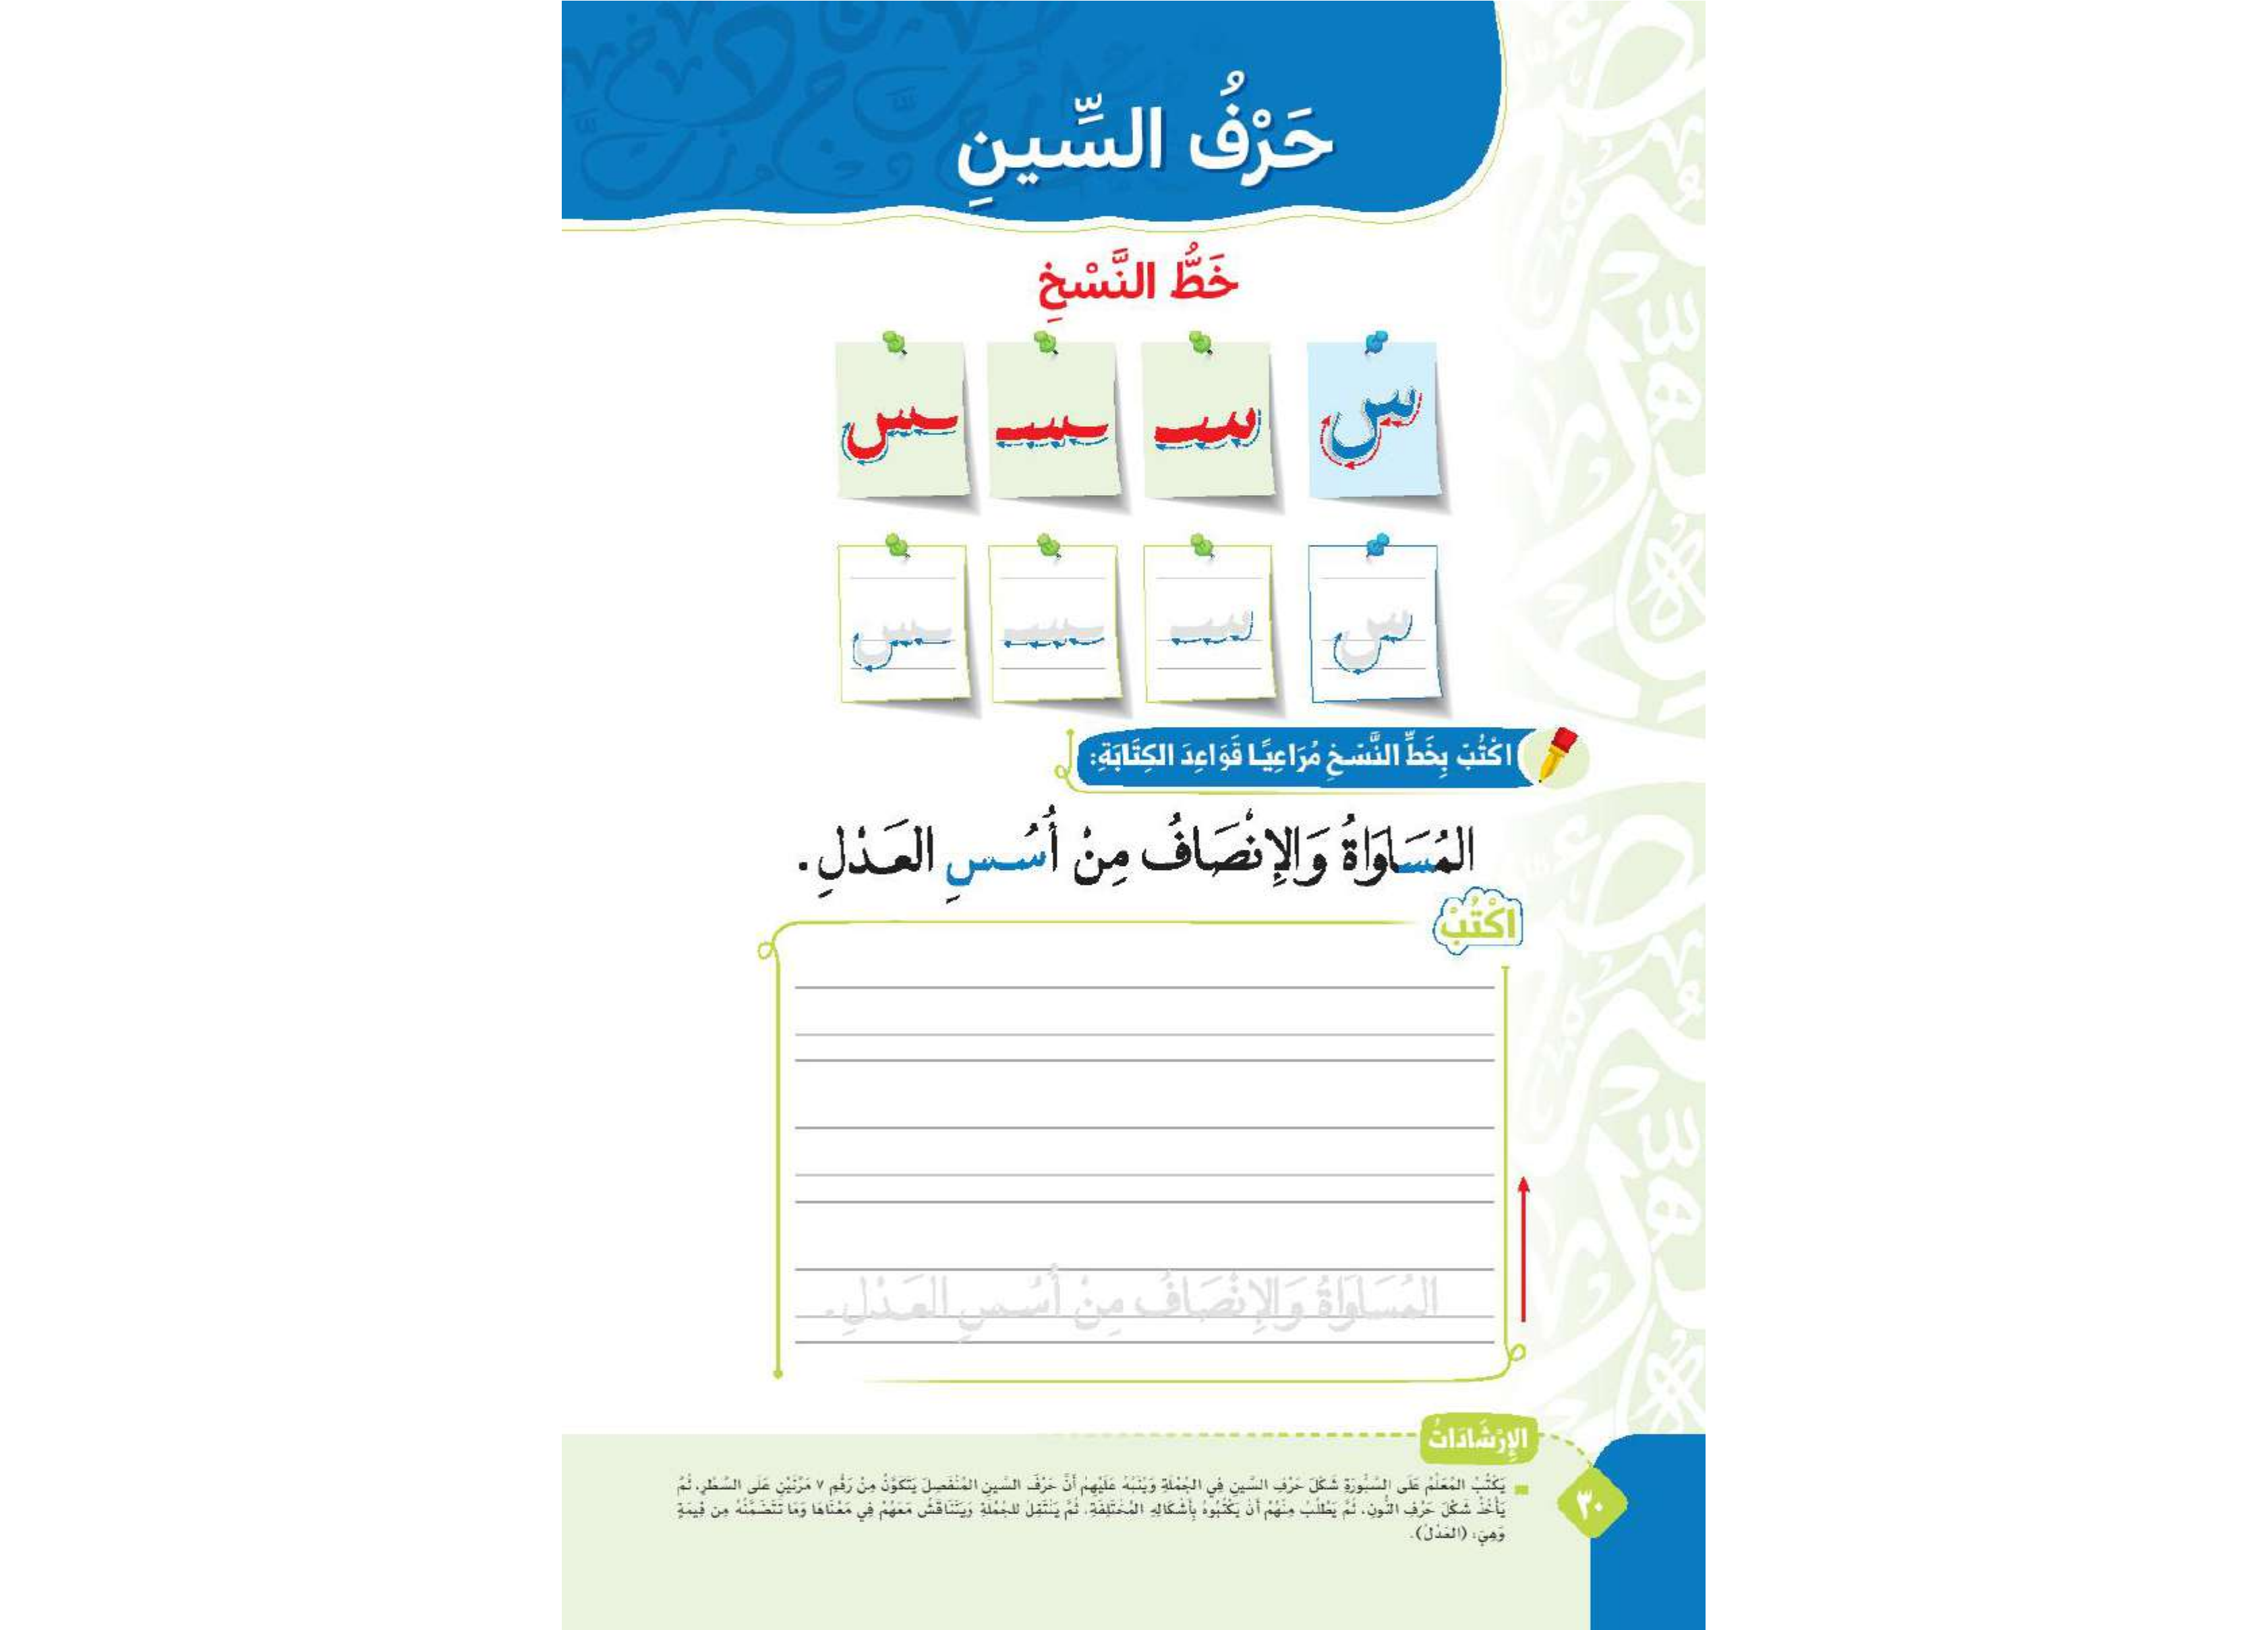 حَرْفُ السِّينِ
خَطُّ النَّسْخِ
س سـ ـسـ ـس
س سـ ـسـ ـس
اكْتُبْ بِخَطِّ النَّسْخِ مُرَاعِيًا قَوَاعِدَ الكِتَابَةِ:
المُسَاوَاةُ وَالإِنْصَافُ مِنْ أُسُسِ العَدْلِ.
اكْتُبْ
المُسَاوَاةُ وَالإِنْصَافُ مِنْ أُسُسِ العَدْلِ.
الإِرْشَادَاتُ
يَكْتُبُ المُعَلِّمُ عَلَى السَّبُّورَةِ شَكْلَ حَرْفِ السِّينِ فِي الجُمْلَةِ وَيُنَبِّهُ عَلَيْهِمْ أَنَّ حَرْفَ السِّينِ المُنْفَصِلَ يَتَكَوَّنُ مِنْ رَقْمِ ٧ مَرَّتَيْنِ عَلَى السَّطْرِ، ثُمَّ
يَأْخُذُ شَكْلَ حَرْفِ النُّونِ، ثُمَّ يَطْلُبُ مِنْهُمْ أَنْ يَكْتُبُوهُ بِأَشْكَالِهِ المُخْتَلِفَةِ، ثُمَّ يَنْتَقِلُ للجُمْلَةِ وَيَتَنَاقَشُ مَعَهُمْ فِي مَعْنَاهَا وَمَا تَتَضَمَّنُهُ مِن قِيمَةٍ
وَهِيَ: (العَدْلُ).
٣٠